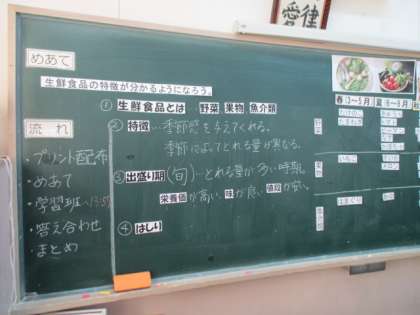 愛律
めあて
生鮮食品の特徴が分かるようになろう。
①生鮮食品とは 野菜 果物 魚介類
流れ
・プリント配布
・めあて
・学習班へ13:57
・答え合わせ
・まとめ
②特徴…季節感を与えてくれる。
季節によってとれる量が異なる。
③出盛り期(旬)ーとれる量が多い時期。
栄養価が高い、味が良い、値段が安い。
④はしり
春(3〜5月)
夏(6〜8月)
たけのこ
きゅうり
いちご
はまぐり